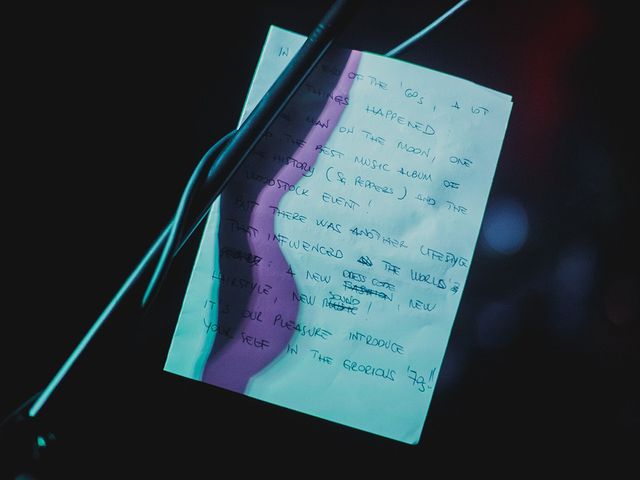 IN END OF THE '60s, A LOT
THINGS HAPPENED:
MAN ON THE MOON, ONE
THE BEST MUSIC ALBUM OF
HISTORY (Sg PEPPERS) AND THE
WOODSTOCK EVENT!
BUT THERE WAS ANOTHER LIFESTYLE
THAT INFLUENCED THE WORLD'S
PEOPLE: A NEW DRESS CODE
HAIRSTYLE, NEW SOUND!, NEW
IT'S OUR PLEASURE INTRODUCE
YOUR SELF IN THE GRORIOUS '70!!